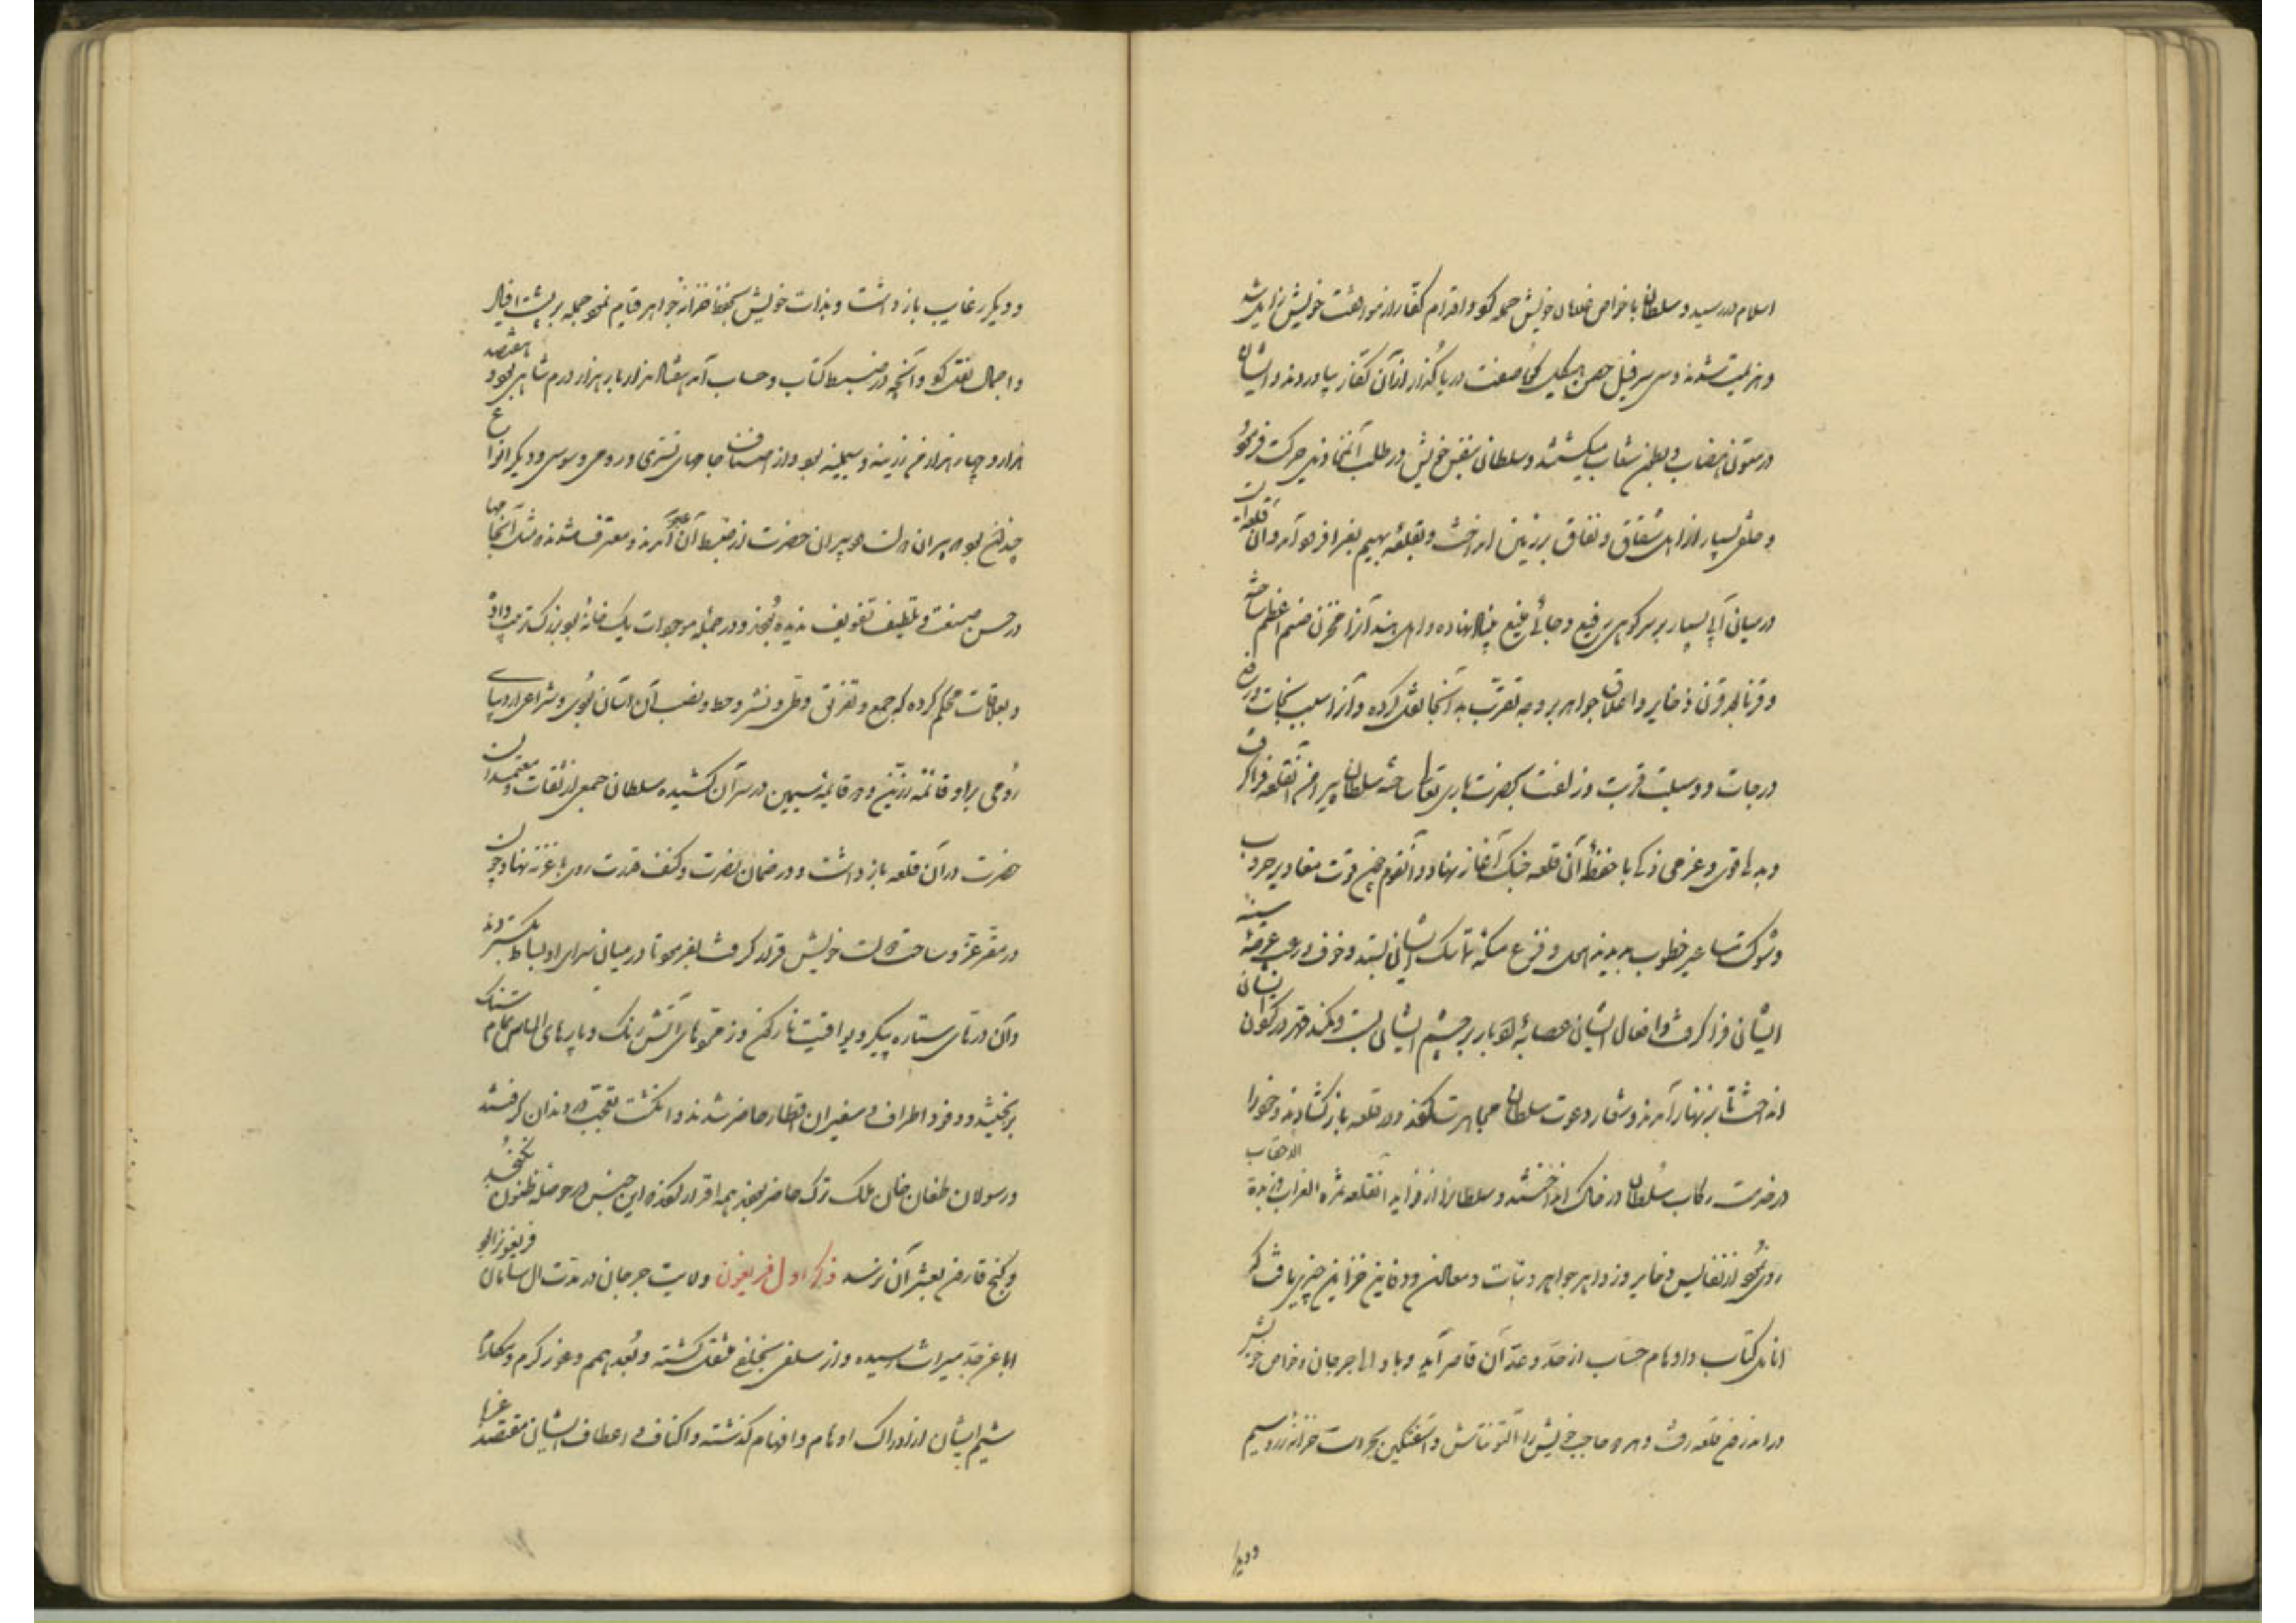 اسلام در رسید و سلطان با خواص غلمان خویش حمله کرد و اقدام کفار از مواطئت خویش زایل شد
و هزیمت شدند و سی سر فیل حصن هیکل دریا گذار از آن کفار بیاوردند و ایشان را
در متون هضاب و بطون شعاب میکشتند و سلطان بنفس خویش در طلب آن حرکت فرمود
و خلق بسیار از اهل شقاق و نفاق بر زمین انداخت و بقلعه بهیم بغرا فرود آمد و آن قلعه است
در میان آبی بسیار بر سر کوهی رفیع و جائی منیع بنیاد نهاده و اهل هند آنرا مخزن صنم اعظم ساخته
و قرنا بعد قرن ذخایر و اعلاق جواهر بر وجه تقرب بدآنجا نقل کرده و آنرا سبب نجات و رفع
درجات و وسیلت قربت و زلفت بحضرت باری تعالی ساخته سلطان پیرامن آنقلعه فرا گرفت
و بدلها قوی و عزمی ذکی با حفظهٔ آن قلعه جنگ آغاز نهاد و آنقوم چون قوت مغاویر حروب
و شوکت مساعیر خطوب بدیدند هول و فزع مسکهٔ تماسک ایشان بستد و خوف و رعب عرصهٔ سینه
ایشان فرا گرفت و افعال ایشان عصابهٔ ادبار بر چشم ایشان بست و کمند قهر در گردن ایشان
انداخت تا بزنهار آمدند و شعار دعوت سلطان مجاهرت کردند و در قلعه باز کشادند و خود را
در خدمت رکاب سلطان در خاک انداختند و سلطانرا از فواید آنقلعه ثمرة الغراب و زبدة الاحقاب
روزی بود از نفایس ذخایر و زواهر جواهر و نبات معادن و دفاین خزاین چیزی یافت که
انامل کتّاب و اوهام حسّاب از حدّ و عدّ آن قاصر آید و با والی جرجان و خواص خویش
در اندرون قلعه رفت و هر دو حاجب خویش را التونتاش و اسغتکین بحراست خزانه زر و سیم
و دیگر
و دیگر رغایب باز داشت و بذات خویش بحفظ خزانه جواهر قیام نمود و جمله بر پشت افیال
و احمال نقل کرد و آنچه در ضبط کتاب و حساب آمد هفتاد هزار بار هزار درم شاهی بود و هفتصد
هزار و چهار هزار من زرینه و سیمینه بود و از اصناف جامهای تستری و رومی و سوسی و دیگر انواع
چندان بود که پیران دولت و دبیران حضرت از ضبط آن عاجز آمدند و معترف شدند که مثل آن جامها
در حسن صنعت و تلطیف تفویف ندیده بودند و در جملهٔ موجودات یک خانهٔ بود بزرگ ترتیب داده
و بعلاقات محکم کرده که جمع و تفریق و طیّ و نشر و حط و نصب آن آسان بودی و شراعی از دیبای
رومی بر دو قائمه زرین و دو قایمه سیمین در سر آن کشیده سلطان جمعی از ثقات و معتمدان
حضرت در آن قلعه بازداشت و در ضمان نصرت و کنف قدرت روی بغزنه نهاد و چون
در مقرّ عزّ و ساحت دولت خویش قرار گرفت بفرمود تا در میان سرای او بساط بکستردند
و آن درّهای ستاره پیکر و یواقیت نار کون و زمرّدهای آتش رنگ و پارهای الماس تمام سنک
بریختند و وفود اطراف و سفیران اقطار حاضر شدند و انکشت تعجب در دندان گرفتند
و رسولان طغان خان ملک ترک حاضر بودند همه اقرار کردند که این جنس در حوصله ظنون نکنجد
و کنج قارون بعشر آن نرسد ذکر اول فریغون ولایت جرجان در مدت آل سامان فریغونیان را بود
ابا عن جد میراث رسیده و از سلف بخلف منتقل گشته و بُعد همم و غور کرم و مکارم
شیم ایشان از ادراک اوهام و افهام گذشته و اکناف و اعطاف ایشان مقصد غربا